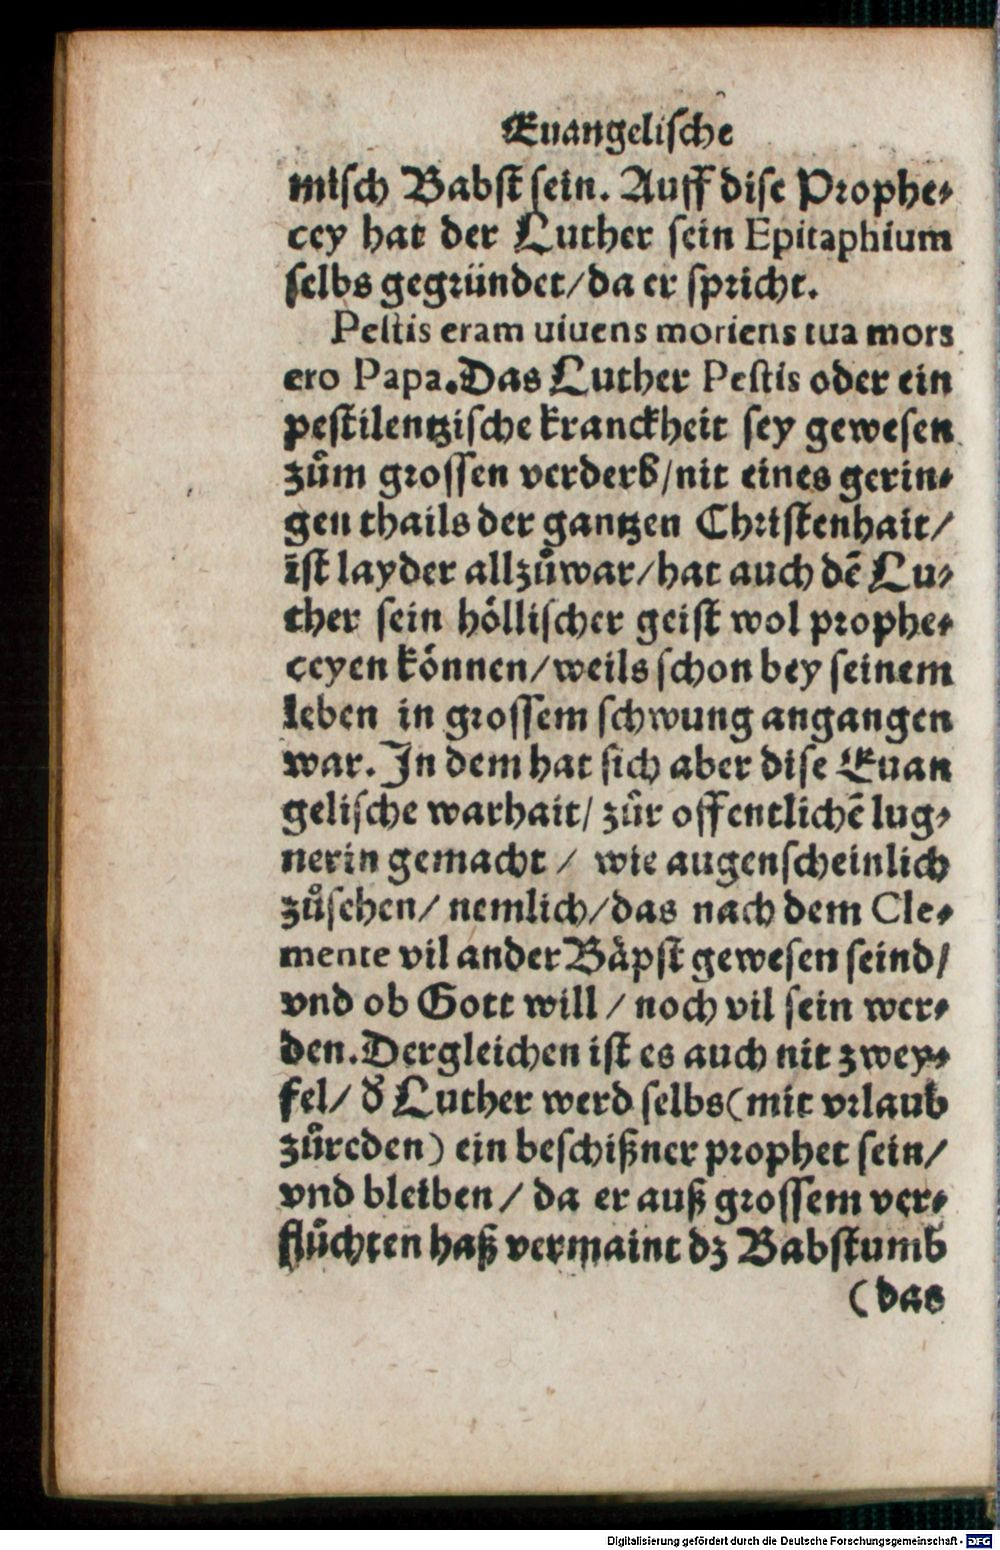 Euangelische
misch Babst sein. Auff dise Prophe⸗
cey hat der Luther sein Epitaphium
selbs gegründet/da er spricht.
Pestis eram uiuens moriens tua mors
ero Papa. Das Luther Pestis oder ein
pestilentzische kranckheit sey gewesen
zům grossen verderb/nit eines gerin⸗
gen thails der gantzen Christenhait/
ist layder allzůwar/hat auch dē Lu⸗
ther sein höllischer geist wol prophe⸗
ceyen können/weils schon bey seinem
leben in grossem schwung angangen
war. In dem hat sich aber dise Euan
gelische warhait/ zůr offentlichē lug⸗
nerin gemacht / wie augenscheinlich
zůsehen/ nemlich/das nach dem Cle⸗
mente vil ander Bäpst gewesen seind/
vnd ob Gott will / noch vil sein wer⸗
den. Dergleichen ist es auch nit zwey⸗
fel/ d̕ Luther werd selbs (mit vrlaub
zůreden) ein beschißner prophet sein/
vnd bleiben / da er auß grossem ver⸗
flůchten haß vermaint dz Babstumb
(das
Digitalisierung gefördert durch die Deutsche Forschungsgemeinschaft - DFG